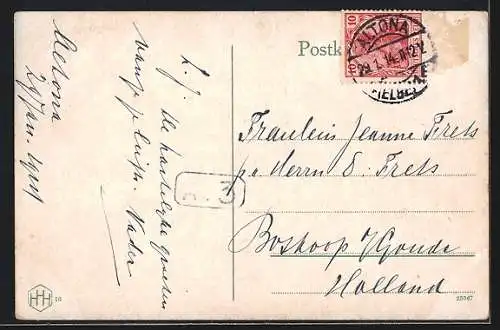 Postk
10 10
ALTONA
29.1.14.11-12V.
(ELBE)
Altona
29 Jan. 1914
L. J.
de hartelijke groeten
van je
Vader
Fräulein Jeanne Frets
p/a Herrn E. Frets
Boskoop b/Gouda
Holland
HHH 10